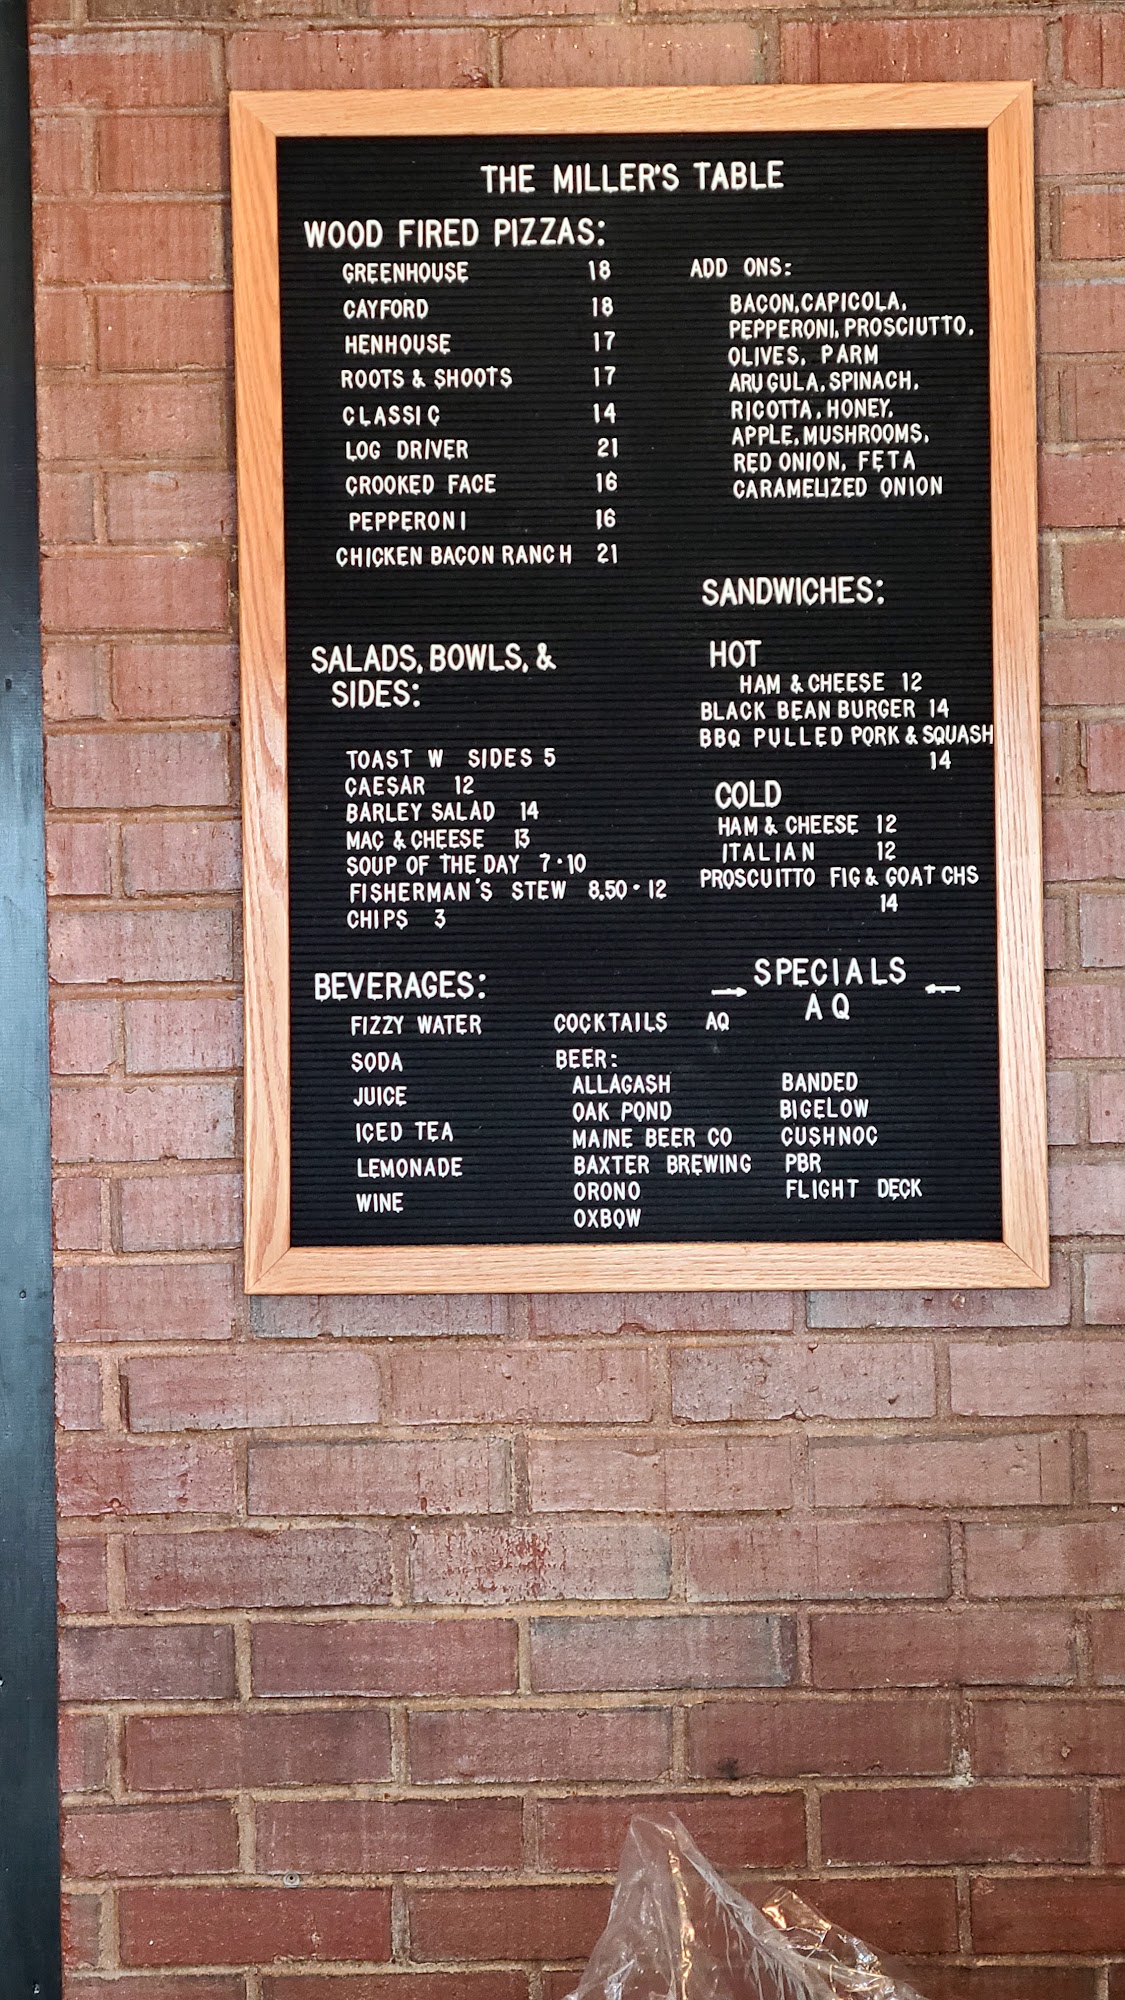 THE MILLER'S TABLE
WOOD FIRED PIZZAS:
GREENHOUSE 18
CAYFORD 18
HENHOUSE 17
ROOTS & SHOOTS 17
CLASSIC 14
LOG DRIVER 21
CROOKED FACE 16
PEPPERONI 16
CHICKEN BACON RANCH 21
ADD ONS:
BACON, CAPICOLA,
PEPPERONI, PROSCIUTTO,
OLIVES, PARM
ARUGULA, SPINACH,
RICOTTA, HONEY,
APPLE, MUSHROOMS,
RED ONION, FETA
CARAMELIZED ONION
SALADS, BOWLS, &
SIDES:
TOAST W SIDES 5
CAESAR 12
BARLEY SALAD 14
MAC & CHEESE 13
SOUP OF THE DAY 7·10
FISHERMAN'S STEW 8.50·12
CHIPS 3
SANDWICHES:
HOT
HAM & CHEESE 12
BLACK BEAN BURGER 14
BBQ PULLED PORK & SQUASH
14
COLD
HAM & CHEESE 12
ITALIAN 12
PROSCUITTO FIG & GOAT CHS
14
SPECIALS
AQ
BEVERAGES:
FIZZY WATER
SODA
JUICE
ICED TEA
LEMONADE
WINE
COCKTAILS AQ
BEER:
ALLAGASH
OAK POND
MAINE BEER CO
BAXTER BREWING
ORONO
OXBOW
BANDED
BIGELOW
CUSHNOC
PBR
FLIGHT DECK